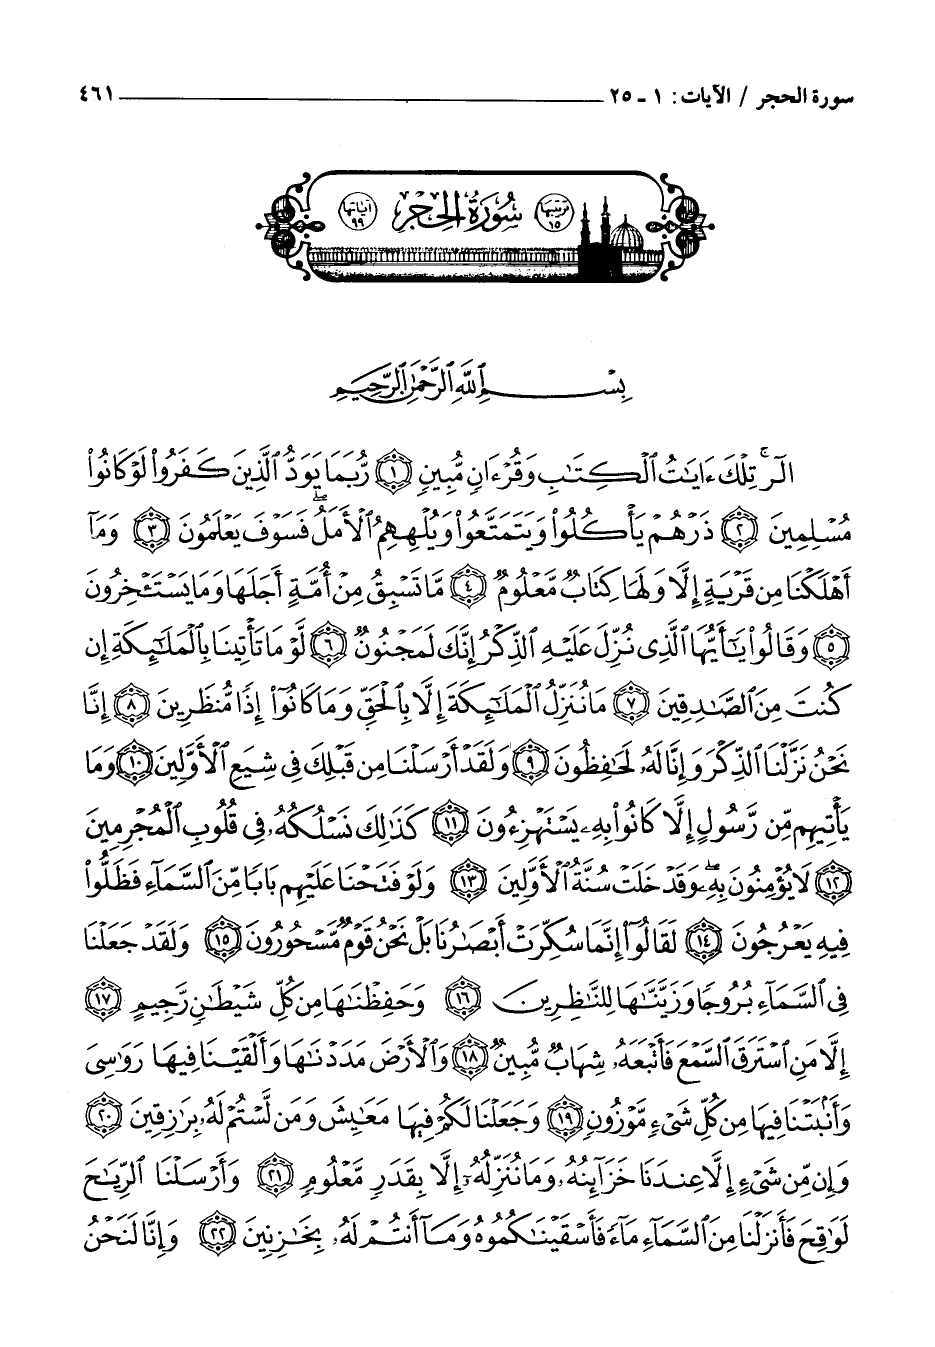 سورة الحجر / الآيات: ١ - ٢٥ ٤٦١
ترتيبها ١٥ سُورَةُ الحِجْرِ آياتها ٩٩
بِسْمِ ٱللَّهِ ٱلرَّحْمَٰنِ ٱلرَّحِيمِ
الٓر ۚ تِلْكَ ءَايَٰتُ ٱلْكِتَٰبِ وَقُرْءَانٍ مُّبِينٍ ١ رُّبَمَا يَوَدُّ ٱلَّذِينَ كَفَرُوا۟ لَوْ كَانُوا۟
مُسْلِمِينَ ٢ ذَرْهُمْ يَأْكُلُوا۟ وَيَتَمَتَّعُوا۟ وَيُلْهِهِمُ ٱلْأَمَلُ ۖ فَسَوْفَ يَعْلَمُونَ ٣ وَمَآ
أَهْلَكْنَا مِن قَرْيَةٍ إِلَّا وَلَهَا كِتَابٌ مَّعْلُومٌ ٤ مَّا تَسْبِقُ مِنْ أُمَّةٍ أَجَلَهَا وَمَا يَسْتَـْٔخِرُونَ
٥ وَقَالُوا۟ يَٰٓأَيُّهَا ٱلَّذِى نُزِّلَ عَلَيْهِ ٱلذِّكْرُ إِنَّكَ لَمَجْنُونٌ ٦ لَّوْ مَا تَأْتِينَا بِٱلْمَلَٰٓئِكَةِ إِن
كُنتَ مِنَ ٱلصَّٰدِقِينَ ٧ مَا نُنَزِّلُ ٱلْمَلَٰٓئِكَةَ إِلَّا بِٱلْحَقِّ وَمَا كَانُوٓا۟ إِذًا مُّنظَرِينَ ٨ إِنَّا
نَحْنُ نَزَّلْنَا ٱلذِّكْرَ وَإِنَّا لَهُۥ لَحَٰفِظُونَ ٩ وَلَقَدْ أَرْسَلْنَا مِن قَبْلِكَ فِى شِيَعِ ٱلْأَوَّلِينَ ١٠ وَمَا
يَأْتِيهِم مِّن رَّسُولٍ إِلَّا كَانُوا۟ بِهِۦ يَسْتَهْزِءُونَ ١١ كَذَٰلِكَ نَسْلُكُهُۥ فِى قُلُوبِ ٱلْمُجْرِمِينَ
١٢ لَا يُؤْمِنُونَ بِهِۦ ۖ وَقَدْ خَلَتْ سُنَّةُ ٱلْأَوَّلِينَ ١٣ وَلَوْ فَتَحْنَا عَلَيْهِم بَابًا مِّنَ ٱلسَّمَآءِ فَظَلُّوا۟
فِيهِ يَعْرُجُونَ ١٤ لَقَالُوٓا۟ إِنَّمَا سُكِّرَتْ أَبْصَٰرُنَا بَلْ نَحْنُ قَوْمٌ مَّسْحُورُونَ ١٥ وَلَقَدْ جَعَلْنَا
فِى ٱلسَّمَآءِ بُرُوجًا وَزَيَّنَّٰهَا لِلنَّٰظِرِينَ ١٦ وَحَفِظْنَٰهَا مِن كُلِّ شَيْطَٰنٍ رَّجِيمٍ ١٧
إِلَّا مَنِ ٱسْتَرَقَ ٱلسَّمْعَ فَأَتْبَعَهُۥ شِهَابٌ مُّبِينٌ ١٨ وَٱلْأَرْضَ مَدَدْنَٰهَا وَأَلْقَيْنَا فِيهَا رَوَٰسِىَ
وَأَنۢبَتْنَا فِيهَا مِن كُلِّ شَىْءٍ مَّوْزُونٍ ١٩ وَجَعَلْنَا لَكُمْ فِيهَا مَعَٰيِشَ وَمَن لَّسْتُمْ لَهُۥ بِرَٰزِقِينَ ٢٠
وَإِن مِّن شَىْءٍ إِلَّا عِندَنَا خَزَآئِنُهُۥ وَمَا نُنَزِّلُهُۥٓ إِلَّا بِقَدَرٍ مَّعْلُومٍ ٢١ وَأَرْسَلْنَا ٱلرِّيَٰحَ
لَوَٰقِحَ فَأَنزَلْنَا مِنَ ٱلسَّمَآءِ مَآءً فَأَسْقَيْنَٰكُمُوهُ وَمَآ أَنتُمْ لَهُۥ بِخَٰزِنِينَ ٢٢ وَإِنَّا لَنَحْنُ